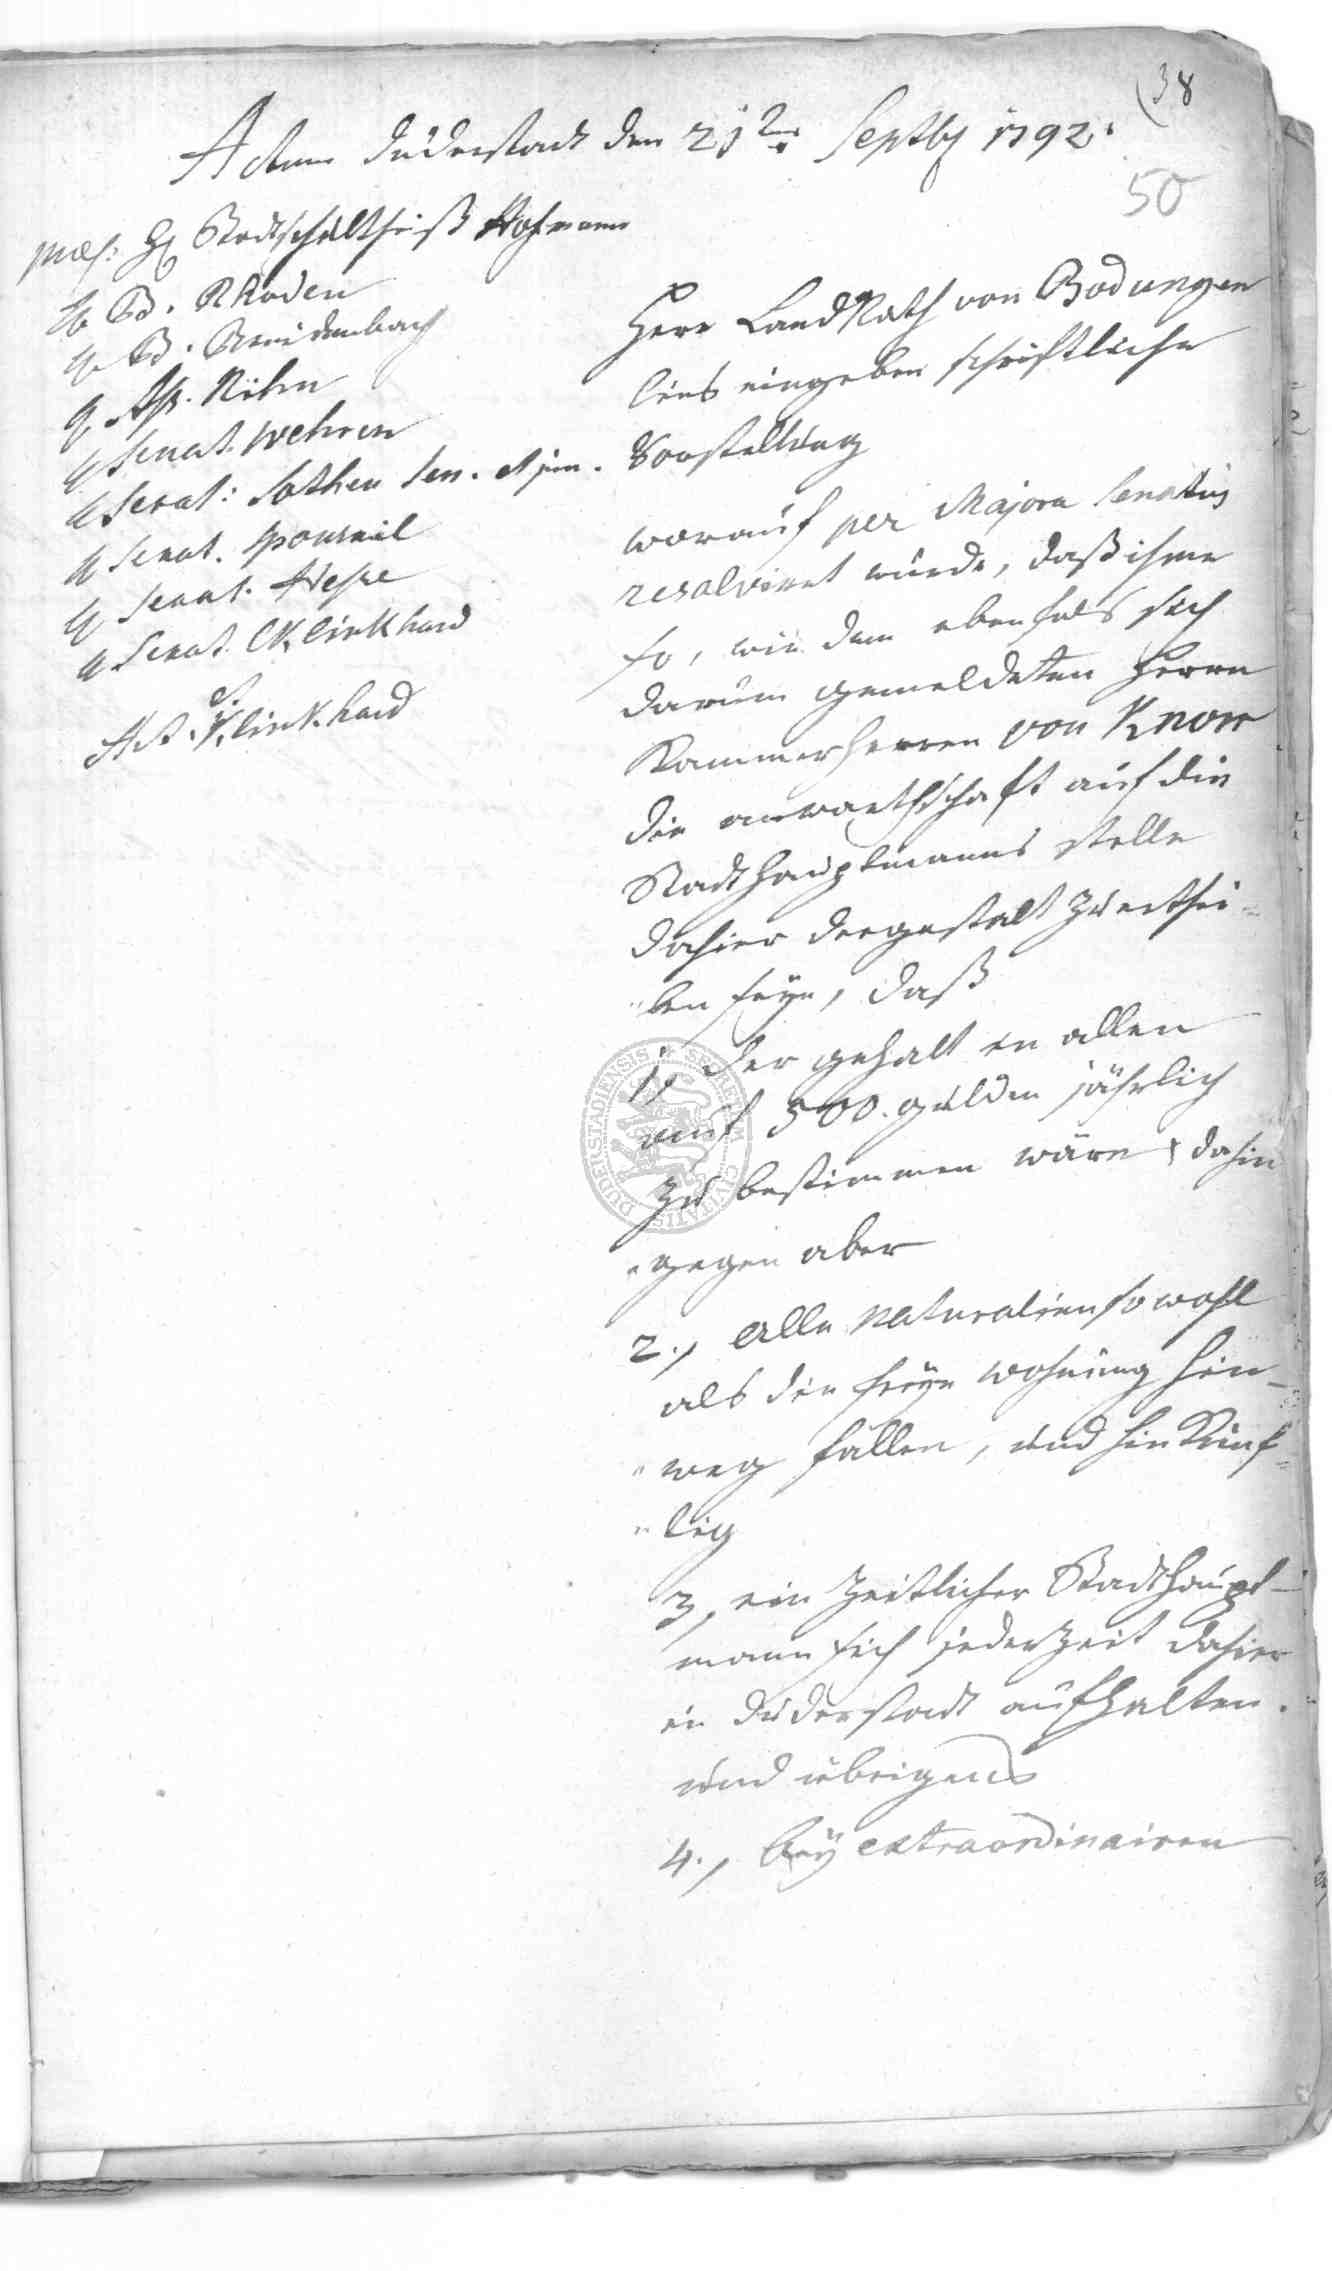 (38
50
Actum Duderstadt den 21ten Septbr 1792.
præs: H. Stadtschultheiß Hofmann
H. B. Rhoden
H. B. Breidenbach
H. Ass. Rihn
H. Senat. Wehren
H. Senat: Sothen Sen. et jun.
H. Senat.
H. Senat. Hesse
H. Senat. Klinkhard
Act. S. Klinkhard
Herr LandRath von Bodungen
lies eingeben schriftliche
Vorstellung
worauf per Majora Senatus
resolviret wurde, daß ihme
so, wie dem ebenfals sich
darum gemeldeten Herrn
Kammerherren von Knorr
die anwarthschaft auf die
Stadthauptmanns stelle
dahier dergestalt zu erthei-
len seye, daß
1, der gehalt in allen
auf 500. gulden jährlich
zu bestimmen wäre, dahin
gegen aber
2., alle Naturalien sowohl
als die freye wohnung hin-
weg fallen, und hinkünf-
tig
3, ein zeitlicher Stadthaupt-
mann sich jederzeit dahier
in Duderstadt aufhalten.
und übrigens
4., bey extraordinairen
SECRETUM CIVITATIS DUDERSTADIENSIS